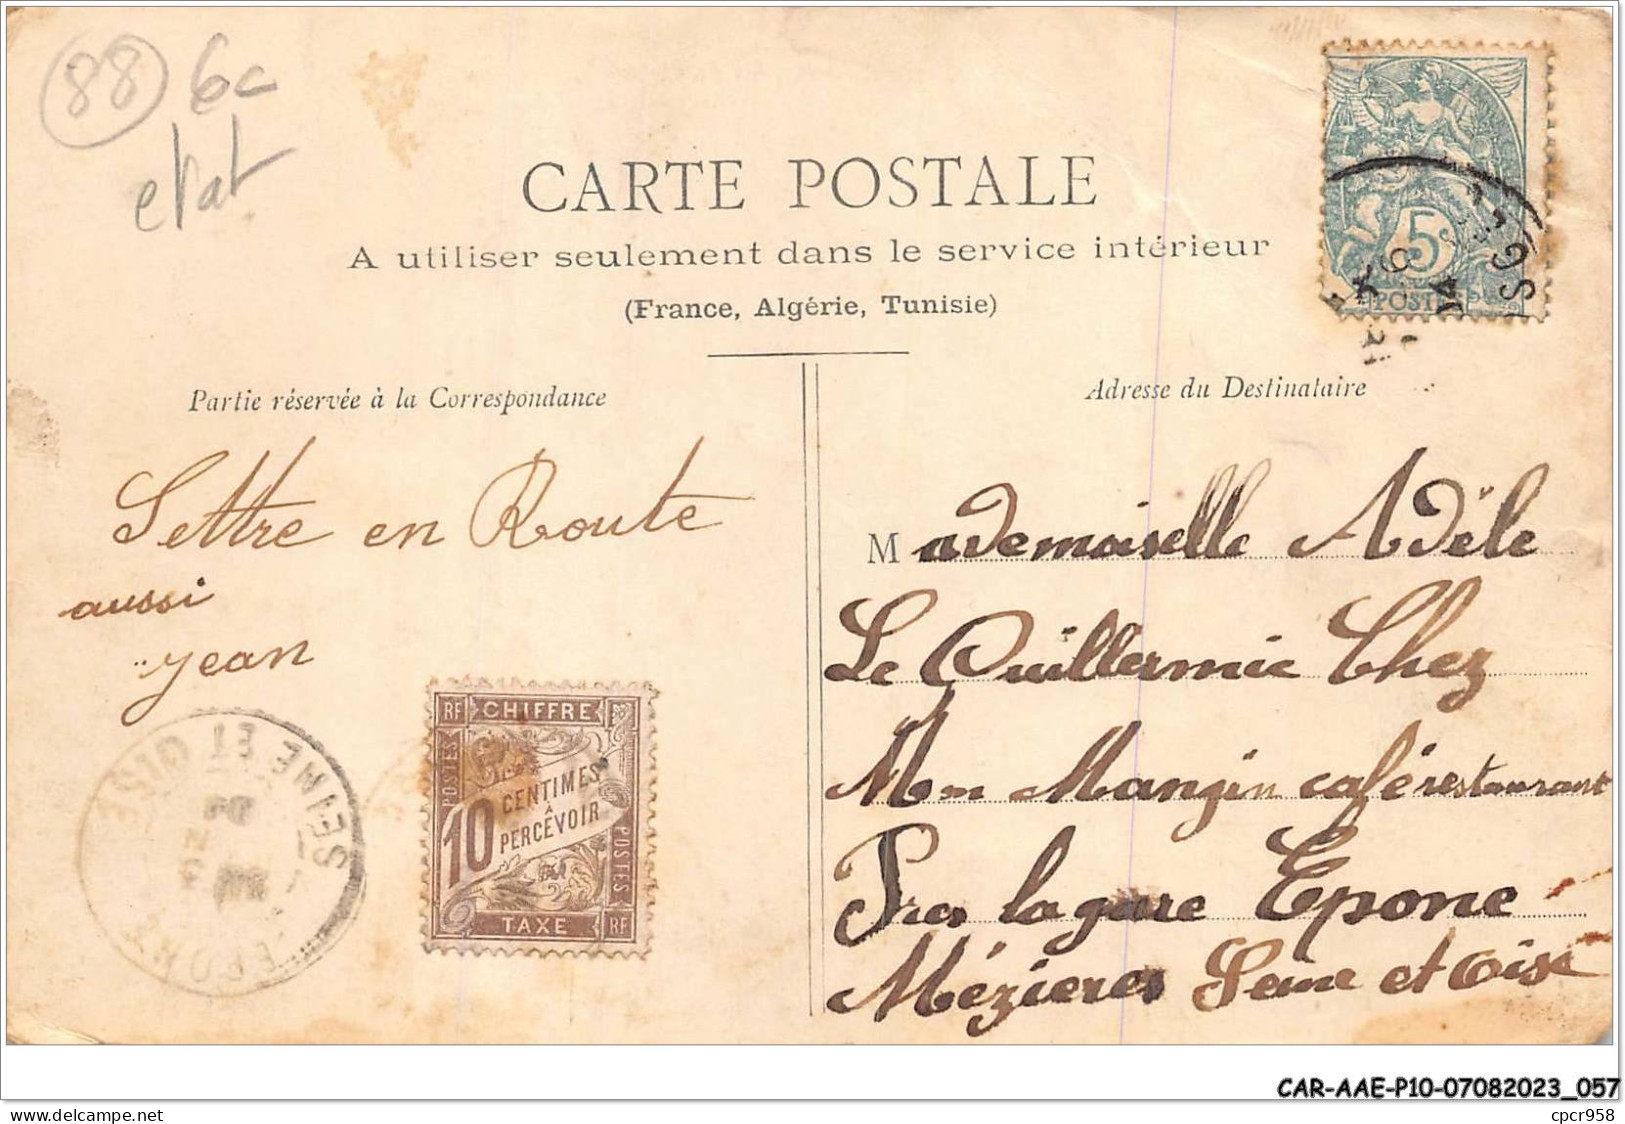 88 6c
etat
CARTE POSTALE
A utiliser seulement dans le service intérieur
(France, Algérie, Tunisie)
5c
POSTES
Partie réservée à la Correspondance
Adresse du Destinataire
Lettre en Route
aussi
jean
Mademoiselle Adèle
Le Quillermic Chez
Mme Mangin café restaurant
Pres la gare Epone
Mézieres Seine et Oise
RF CHIFFRE
POSTES
10 CENTIMES
A
PERCEVOIR
POSTES
TAXE RF
SEINE ET OISE
EPONE
CAR-AAE-P10-07082023_057
cpcr958